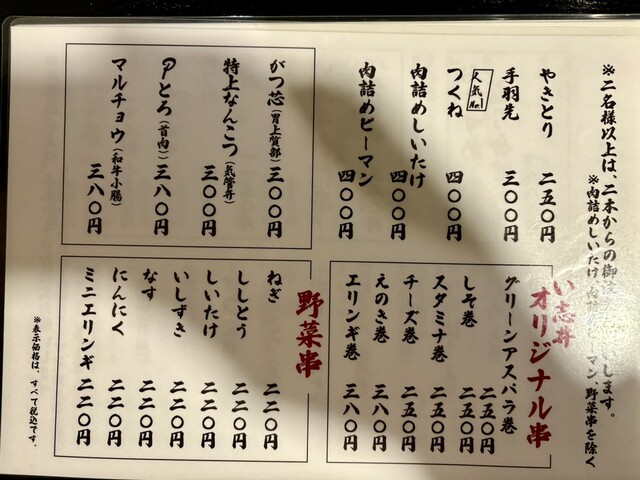 ※二名様以上は、二本からの御
いします。
※肉詰めしいたけ、肉詰めピーマン、野菜串を除く
やきとり 二五〇円
手羽先 三〇〇円
人気No.1
つくね 四〇〇円
肉詰めしいたけ 四〇〇円
肉詰めピーマン 四〇〇円
がつ芯(胃上質部) 三〇〇円
特上なんこつ(気管弁) 三〇〇円
Pとろ(首肉) 三八〇円
マルチョウ(和牛小腸) 三八〇円
い志井
オリジナル串
グリーンアスパラ巻 二五〇円
しそ巻 二五〇円
スタミナ巻 二五〇円
チーズ巻 二五〇円
えのき巻 三八〇円
エリンギ巻 三八〇円
野菜串
ねぎ 二二〇円
ししとう 二二〇円
しいたけ 二二〇円
いしずき 二二〇円
なす 二二〇円
にんにく 二二〇円
ミニエリンギ 二二〇円
※表示価格は、すべて税込です。